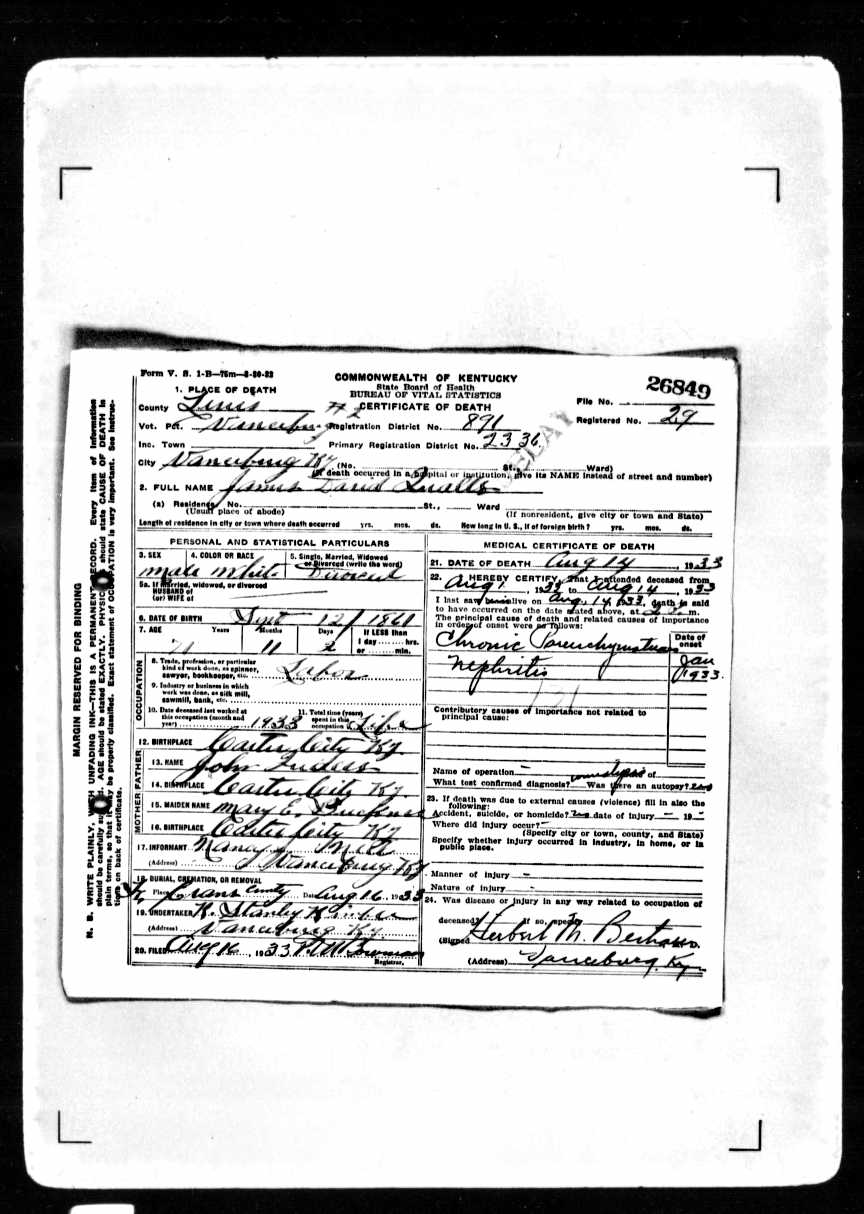 Form V. S. 1-B—75m—8-30-32
COMMONWEALTH OF KENTUCKY
State Board of Health
BUREAU OF VITAL STATISTICS
CERTIFICATE OF DEATH
26849
1. PLACE OF DEATH
County Lewis
File No.
Vot. Pct. Vanceburg #2 Registration District No. 891
Registered No. 29
Inc. Town Primary Registration District No. 2336
City Vanceburg Ky (No. St., Ward)
(If death occurred in a hospital or institution, give its NAME instead of street and number)
2. FULL NAME James David Qualls
(a) Residence, No. St., Ward
(Usual place of abode) (If nonresident, give city or town and State)
Length of residence in city or town where death occurred yrs. mos. ds. How long in U. S., if of foreign birth? yrs. mos. ds.
PERSONAL AND STATISTICAL PARTICULARS
3. SEX 4. COLOR OR RACE 5. Single, Married, Widowed or Divorced (write the word)
male White Divorced
5a. If married, widowed, or divorced
HUSBAND of
(or) WIFE of
6. DATE OF BIRTH Sept 12 1861
7. AGE Years Months Days If LESS than
71 11 2 1 day hrs.
or min.
OCCUPATION
8. Trade, profession, or particular
kind of work done, as spinner,
sawyer, bookkeeper, etc. Labor
9. Industry or business in which
work was done, as silk mill,
sawmill, bank, etc.
10. Date deceased last worked at
this occupation (month and
year) 1933
11. Total time (years)
spent in this
occupation Life
12. BIRTHPLACE Carter City Ky.
FATHER
13. NAME John
14. BIRTHPLACE Carter City Ky.
MOTHER
15. MAIDEN NAME Mary E.
16. BIRTHPLACE Carter City Ky
17. INFORMANT Nancy
(Address) Vanceburg Ky
18. BURIAL, CREMATION, OR REMOVAL
Place County Date Aug 16, 1933
19. UNDERTAKER R. Stanley
(Address) Vanceburg Ky
20. FILED Aug 16, 1933 Bowman
Registrar.
MEDICAL CERTIFICATE OF DEATH
21. DATE OF DEATH Aug 14, 1933
22. I HEREBY CERTIFY, That I attended deceased from
Aug 1, 1933 to Aug 14, 1933
I last saw him alive on Aug 14, 1933, death is said
to have occurred on the date stated above, at m.
The principal cause of death and related causes of importance
in order of onset were as follows:
Date of
onset
Chronic Parenchymatous
Nephritis
Jan
1933
Contributory causes of importance not related to
principal cause:
Name of operation – Date of
What test confirmed diagnosis? urinalysis Was there an autopsy? no
23. If death was due to external causes (violence) fill in also the
following:
Accident, suicide, or homicide? no date of injury – 19 –
Where did injury occur? –
(Specify city or town, county, and State)
Specify whether injury occurred in industry, in home, or in
public place.
Manner of injury –
Nature of injury –
24. Was disease or injury in any way related to occupation of
deceased? If so, specify
(Signed) Herbert M. Bertram
(Address) Vanceburg, Ky
MARGIN RESERVED FOR BINDING
N. B. WRITE PLAINLY, WITH UNFADING INK—THIS IS A PERMANENT RECORD. Every item of information
should be carefully supplied. AGE should be stated EXACTLY. PHYSICIANS should state CAUSE OF DEATH in
plain terms, so that it may be properly classified. Exact statement of OCCUPATION is very important. See instruc-
tions on back of certificate.